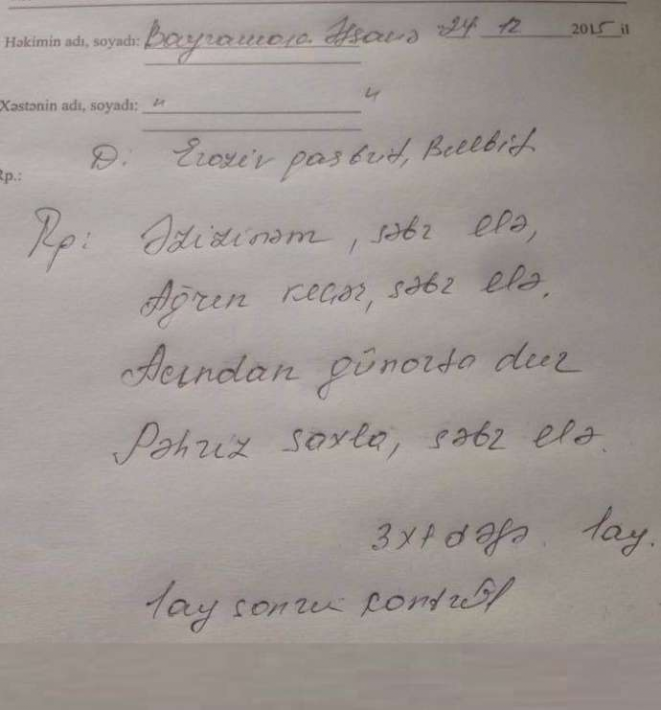 Həkimin adı, soyadı: Bayramova Əfsanə 24 12 2015 il
Xəstənin adı, soyadı: " "
D: Eroziv qastrit, Bulbit
Rp.:
Rp: Əzizinəm, səbr elə,
Ağrın keçər, səbr elə.
Acından günorta dur
Pəhriz saxla, səbr elə.
3x1 dəfə. 1 ay.
1 ay sonra kontrol